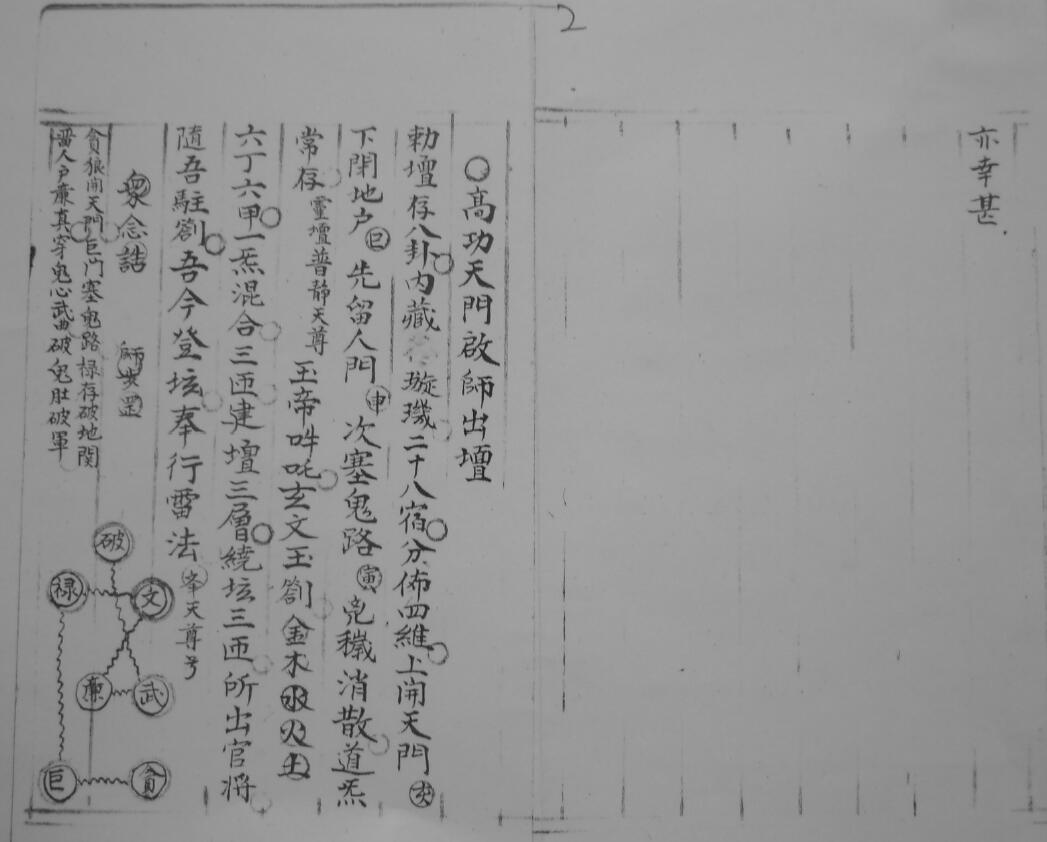 2
亦幸甚
○高功天門啟師出壇
勅壇存八卦内藏璇璣二十八宿分佈四維上開天門亥
下閉地户巳先留人門申次塞鬼路寅兇穢消散道炁
常存靈壇普静天尊玉帝吽吒玄文玉劄金木水火土
六丁六甲一炁混合三匝建壇三層繞坛三匝所出官将
隨吾駐劄吾今登坛奉行雷法举天尊号
衆念誥 師步罡
貪狼開天門巨门塞鬼路禄存破地関
畱人户廉真穿鬼心武曲破鬼肚破軍
破
禄 文
廉 武
巨 貪